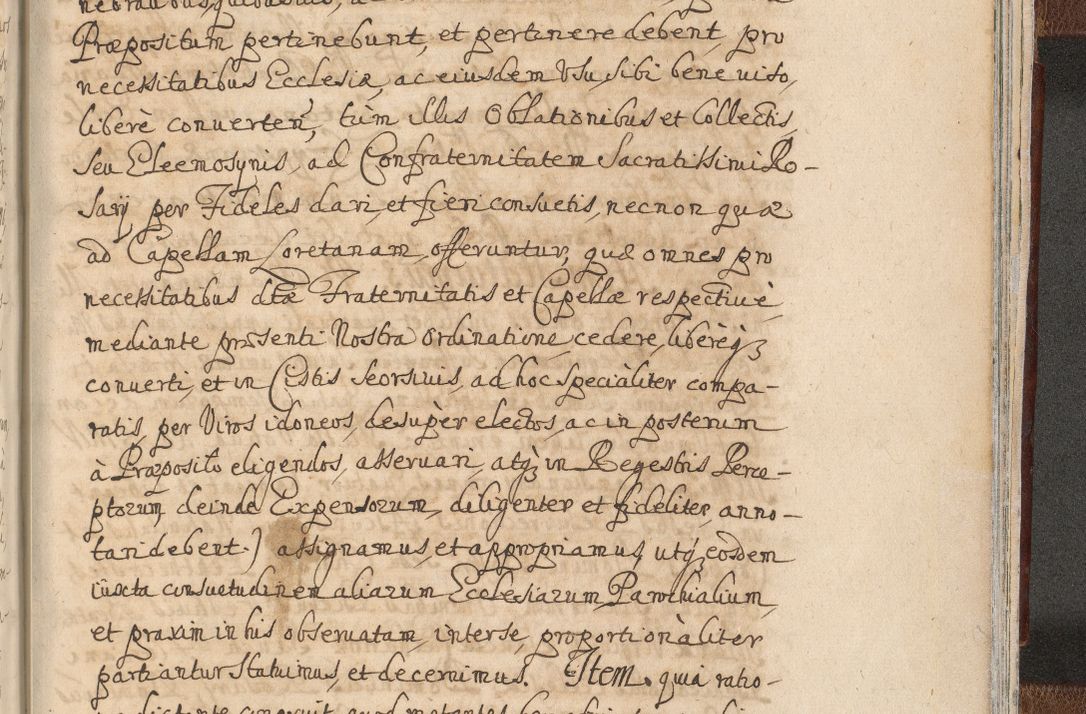 Præpositum pertinebunt, et pertinere debent, pro
necessitatibus Ecclesiæ, ac eiusdem Vsu, sibi bene uiso,
liberè conuerten̄, tùm illis Oblationibus et Collectis,
seu Eleemosynis, ad Confraternitatem Sacratissimi Ro-
sarij per Fideles dari, et fieri consuetis, necnon quæ
ad Capellam Loretanam offeruntur, quæ omnes pro
necessitatibus dtæ Fraternitatis et Capellæ respectiuè,
mediante præsenti Nostra Ordinatione, cedere, liberèq;
conuerti, et in Cistis seorsiuis, ad hoc speciàliter compa-
ratis, per Viros idoneos, desupèr electos, ac in posterum
à Præposito eligendos, asseruari, atq; in Regestris Perce-
ptorum, deinde Expensorum, diligenter et fideliter, anno-
tari debent.) assignamus, et appropriamus, utq; eosdem
iuxta consuetudinem aliarum Ecclesiarum Parochialium,
et praxim in his obseruatam, interse, proportionàliter
partiantur statuimus, et decernimus. Item. quia ratio-